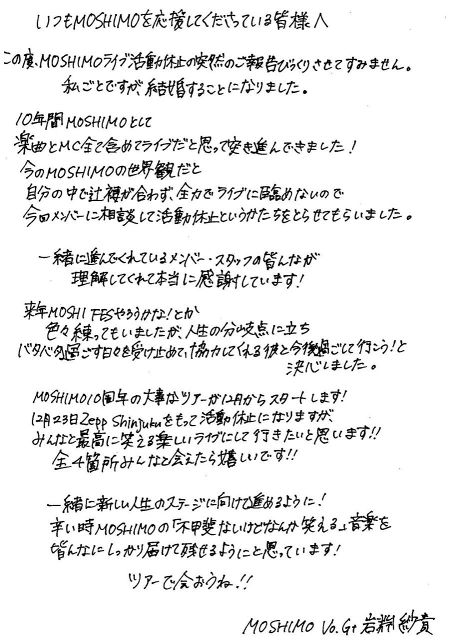 いつもMOSHIMOを応援してくださっている皆様へ
この度、MOSHIMOライブ活動休止の突然のご報告びっくりさせてすみません。
私ごとですが、結婚することになりました。
10年間MOSHIMOとして
楽曲とMC全て含めてライブだと思って突き進んできました!
今のMOSHIMOの世界観だと
自分の中で辻褄が合わず、全力でライブに臨めないので
今回メンバーに相談して活動休止というかたちをとらせてもらいました。
一緒に進んでくれているメンバー・スタッフの皆んなが
理解してくれて本当に感謝しています!
来年MOSHI FESやろうかな!とか
色々練ってもいましたが、人生の分岐点に立ち
バタバタ過ごす日々を受け止めて、協力してくれる彼と今後過ごして行こう!と
決心しました。
MOSHIMO10周年の大事なツアーが12月からスタートします!
12月23日Zepp Shinjukuをもって活動休止になりますが、
みんなと最高に笑える楽しいライブにして行きたいと思います!!
全4箇所みんなと会えたら嬉しいです!!
一緒に新しい人生のステージに向けて進めるように!
辛い時MOSHIMOの「不甲斐ないけどなんか笑える」音楽を
皆んなにしっかり届けて残せるようにと思っています!
ツアーで会おうね!!
MOSHIMO Vo.Gt 岩淵紗貴